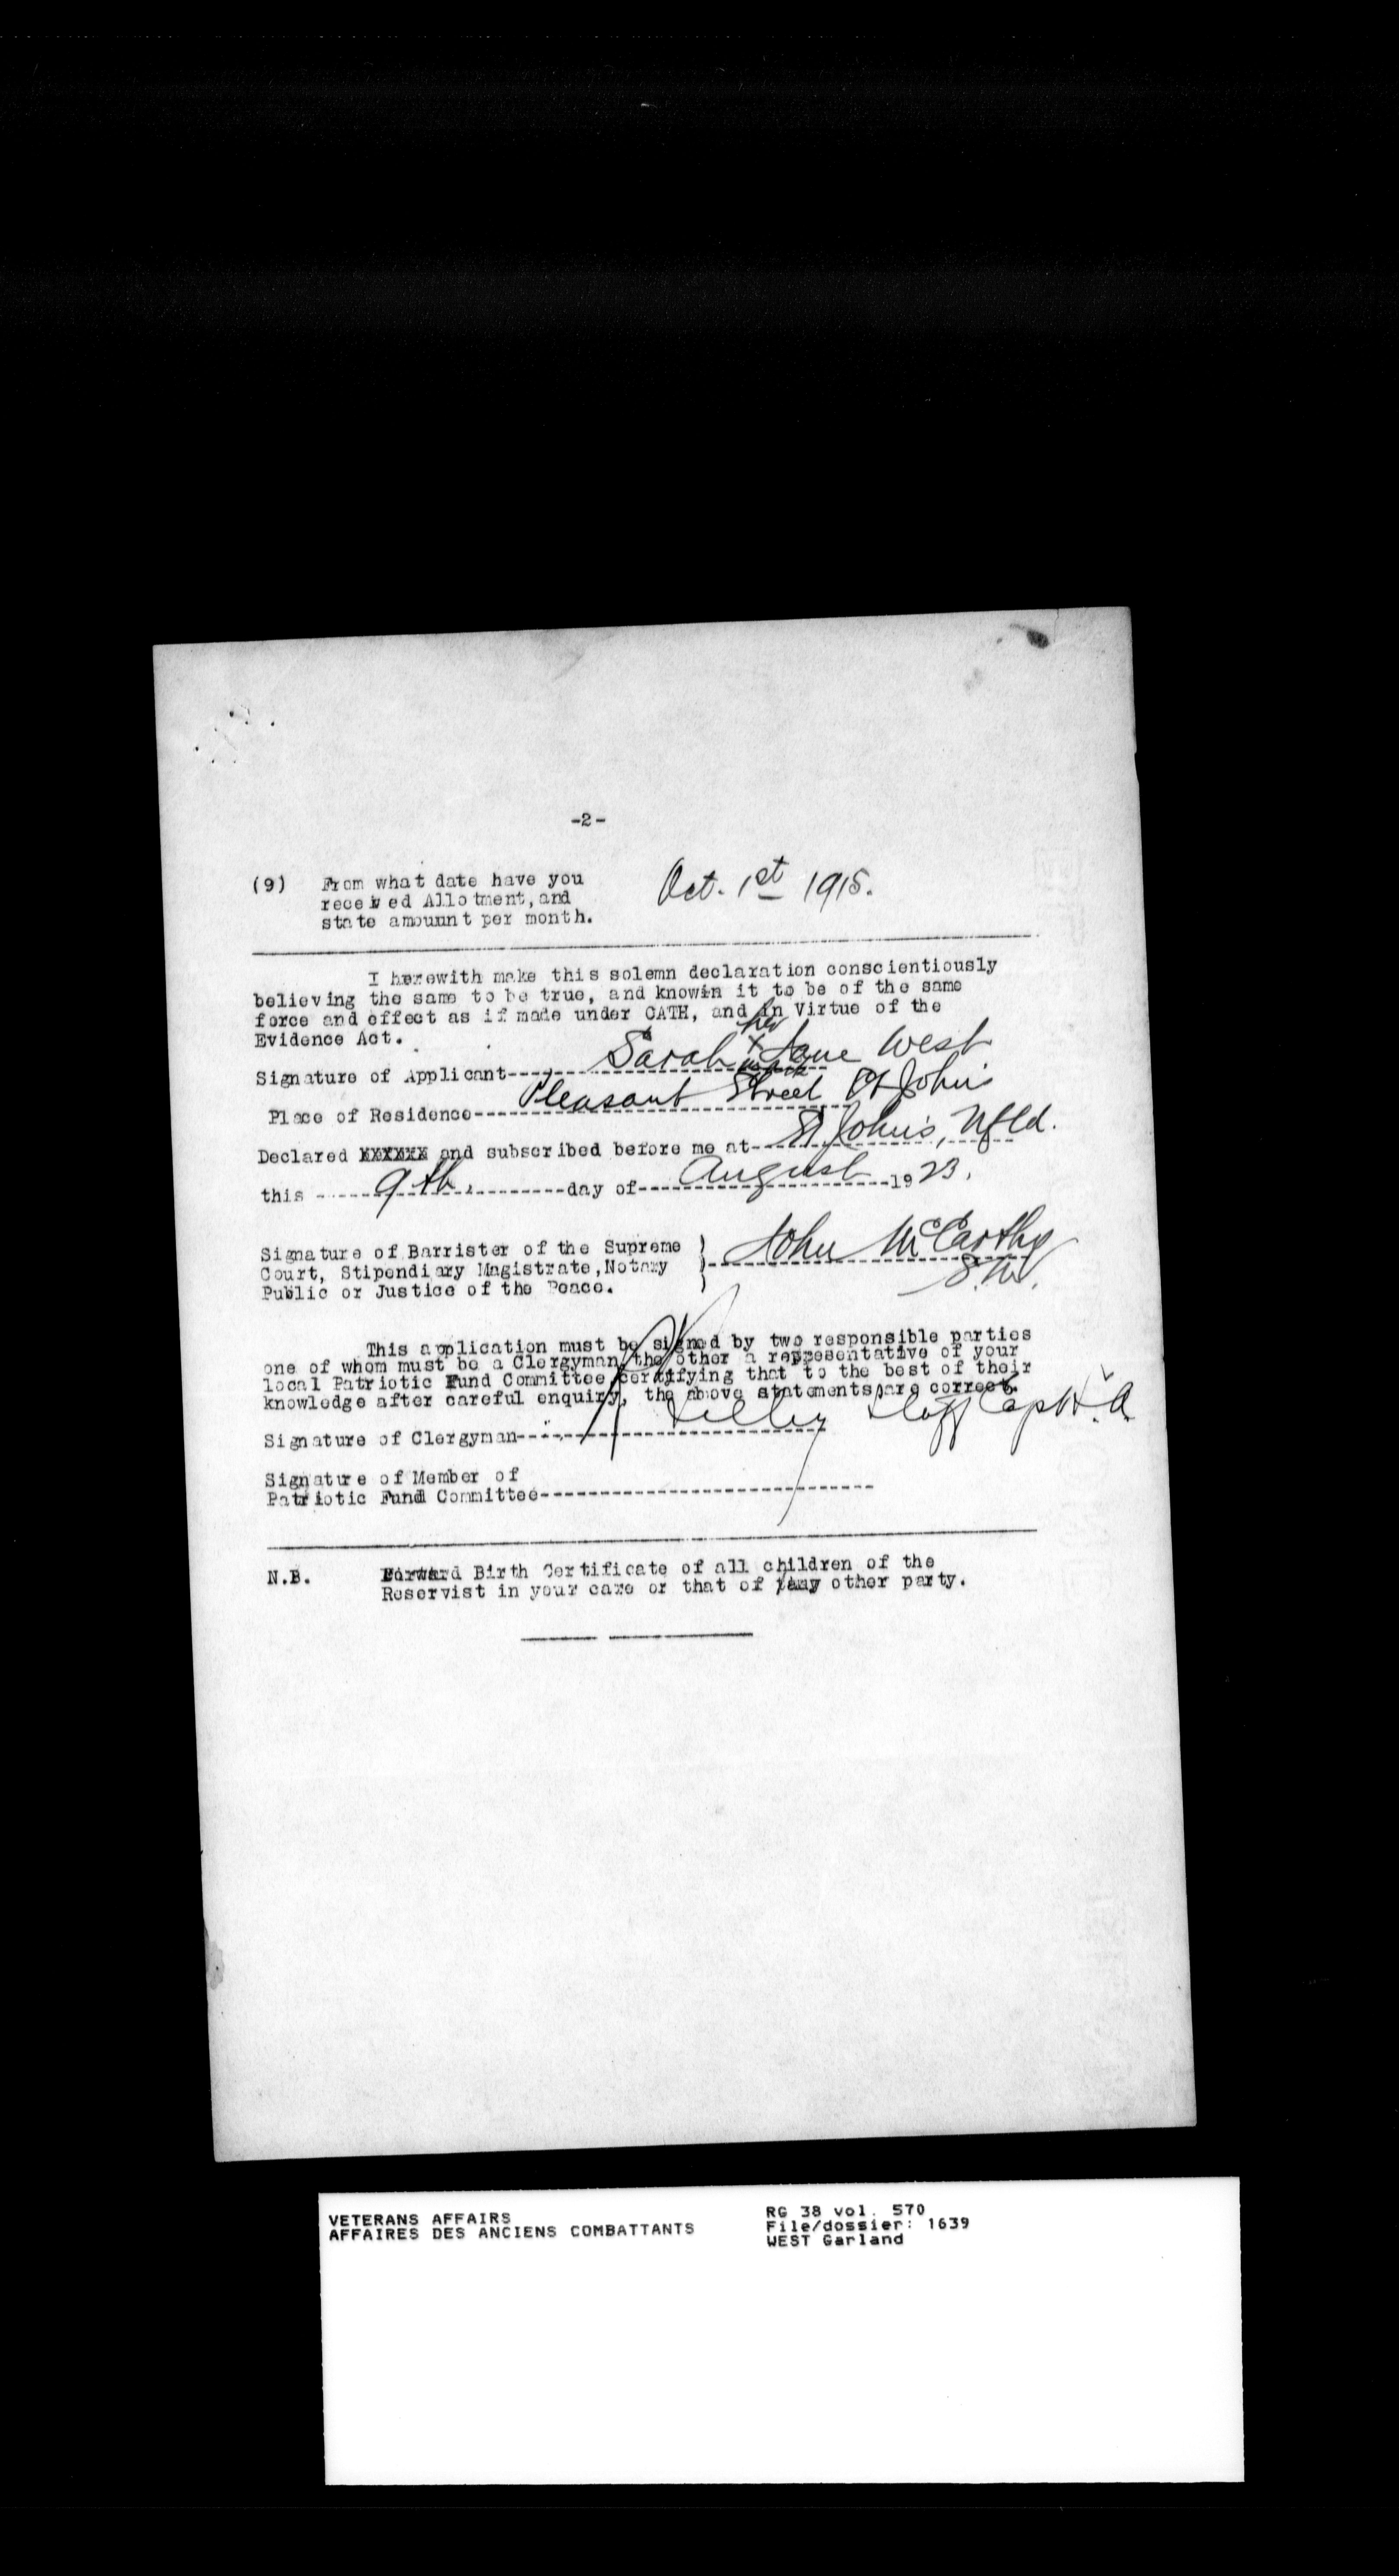 -2-
(9) From what date have you
received Allotment, and
state amouunt per month.
Oct. 1st 1915.
I herewith make this solemn declaration conscientiously
believing the same to be true, and knowin it to be of the same
force and effect as if made under OATH, and in Virtue of the
Evidence Act.
her
Signature of Applicant---- Sarah X Jane West
mark
Place of Residence---- Pleasant Street St John's
Declared XXXXXX and subscribed before me at-- St John's, Nfld.
this ---- 9th. ----day of---- August ----1923.
Signature of Barrister of the Supreme
Court, Stipendiary Magistrate, Notary
Public or Justice of the Peace.
) John McCarthy
S.M.
This application must be signed by two responsible parties
one of whom must be a Clergyman, the other a representative of your
local Patriotic Fund Committee, certifying that to the best of their
knowledge after careful enquiry, the above statements are correct.
Signature of Clergyman---- Staff Capt.
Signature of Member of
Patriotic Fund Committee----
N.B. Forward Birth Certificate of all children of the
Reservist in your care or that of any other party.
VETERANS AFFAIRS
AFFAIRES DES ANCIENS COMBATTANTS
RG 38 vol. 570
File/dossier: 1639
WEST Garland